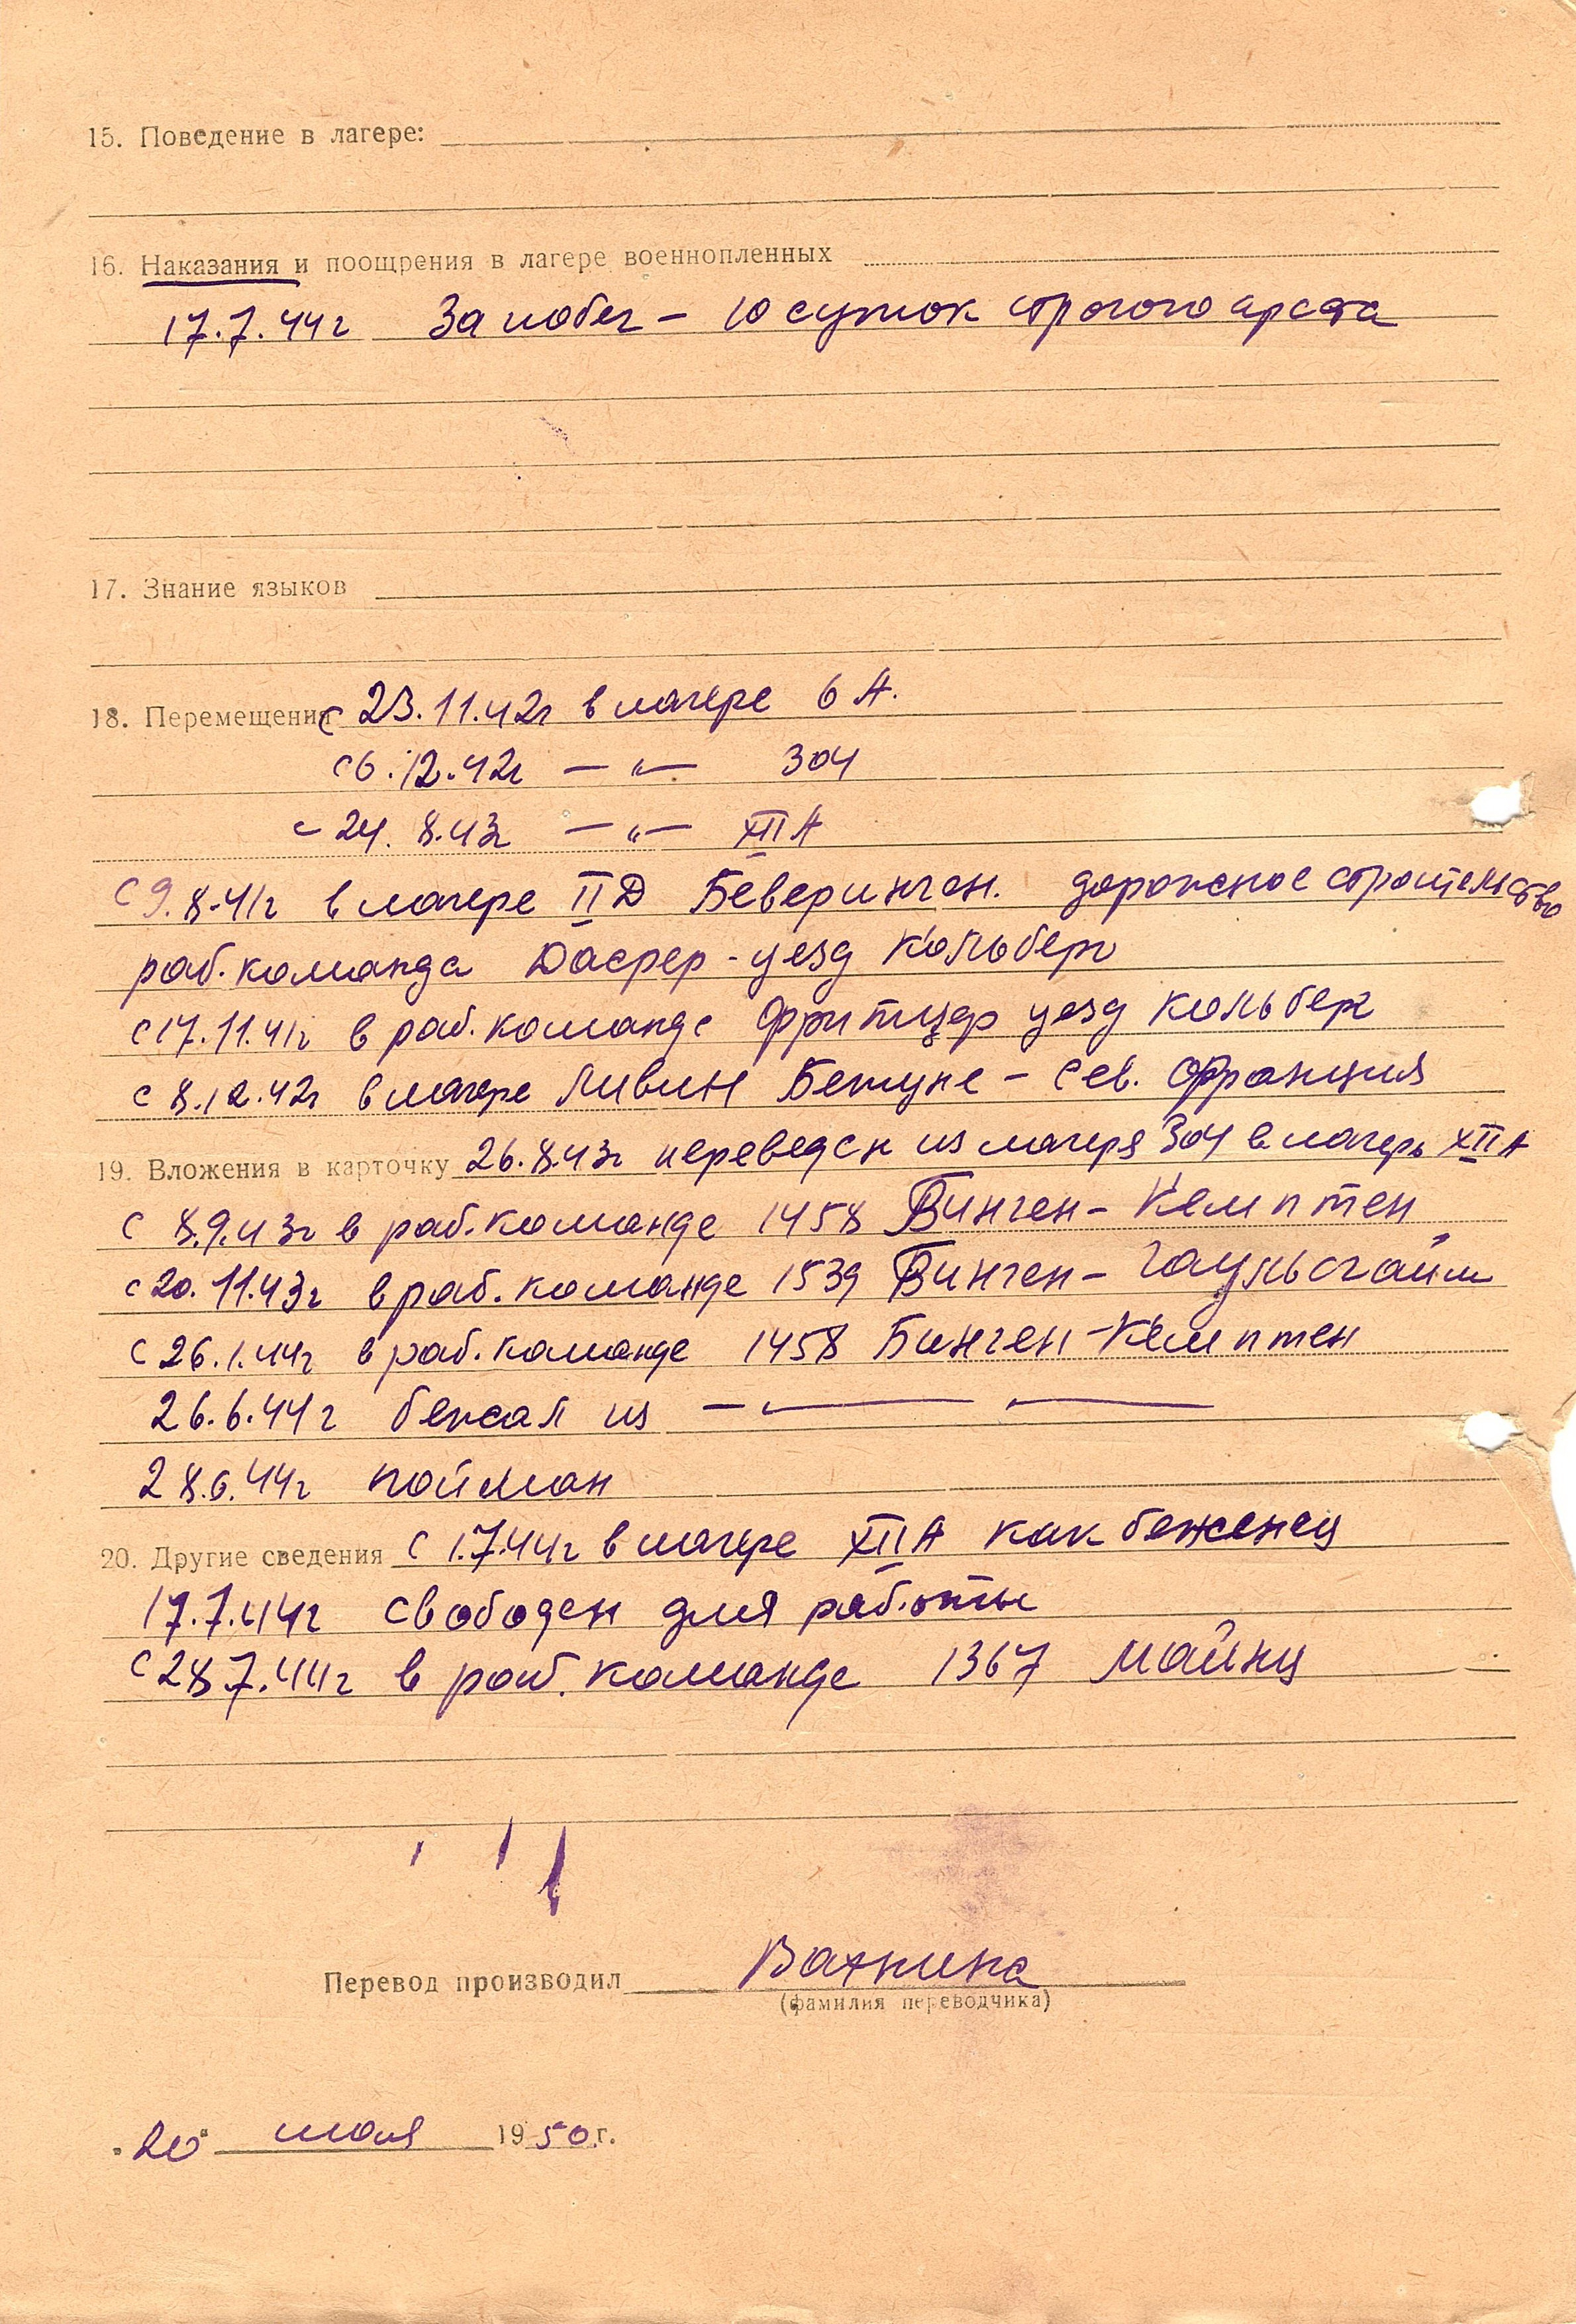 15. Поведение в лагере:
16. Наказания и поощрения в лагере военнопленных
17.7.44г За побег - 10 суток строгого ареста
17. Знание языков
18. Перемещения с 23.11.42г в лагере 6 А.
с 6.12.42г — " — 304
с 24.8.43г — " — XII А
с 9.8.41г в лагере II Д Беверинген. дорожное строительство
раб. команда уезд Кольберг
с 17.11.41г в раб. команде уезд Кольберг
с 8.12.42г в лагере Ливин Бетуне - Сев. Франция
19. Вложения в карточку 26.8.43г переведен из лагеря 304 в лагерь XII А
с 8.9.43г в раб. команде 1458 Бинген - Кемптен
с 20.11.43г в раб. команде 1539 Бинген - Гаульсгайм
с 26.1.44г в раб. команде 1458 Бинген - Кемптен
26.6.44г бежал из — " —
28.6.44г пойман
20. Другие сведения с 1.7.44г в лагере XII А как беженец
17.7.44г свободен для работы
с 28.7.44г в раб. команде 1367 Майнц
Перевод производил
(фамилия переводчика)
"20" июля 1950 г.